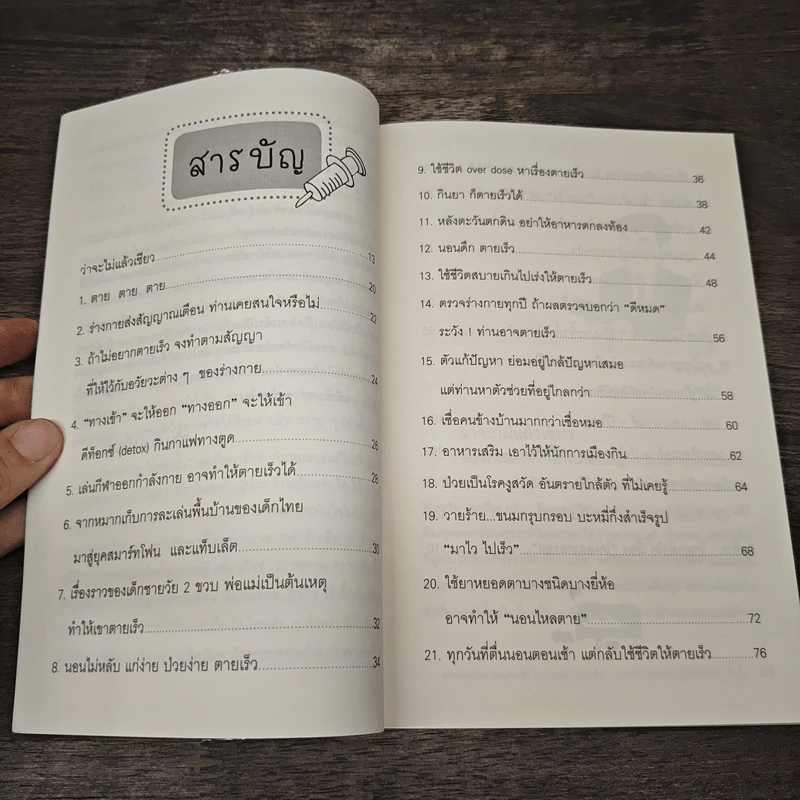 สารบัญ
ว่าจะไม่แล้วเชียว 13
1. ตาย ตาย ตาย 20
2. ร่างกายส่งสัญญาณเตือน ท่านเคยสนใจหรือไม่ 22
3. ถ้าไม่อยากตายเร็ว จงทำตามสัญญา
ที่ให้ไว้กับอวัยวะต่าง ๆ ของร่างกาย 24
4. “ทางเข้า” จะให้ออก “ทางออก” จะให้เข้า
ดีท็อกซ์ (detox) กินกาแฟทางตูด 26
5. เล่นกีฬาออกกำลังกาย อาจทำให้ตายเร็วได้ 28
6. จากหมากเก็บการละเล่นพื้นบ้านของเด็กไทย
มาสู่ยุคสมาร์ทโฟน และแท็บเล็ต 30
7. เรื่องราวของเด็กชายวัย 2 ขวบ พ่อแม่เป็นต้นเหตุ
ทำให้เขาตายเร็ว 32
8. นอนไม่หลับ แก่ง่าย ป่วยง่าย ตายเร็ว 34
9. ใช้ชีวิต over dose หาเรื่องตายเร็ว 36
10. กินยา ก็ตายเร็วได้ 38
11. หลังตะวันตกดิน อย่าให้อาหารตกลงท้อง 42
12. นอนดึก ตายเร็ว 44
13. ใช้ชีวิตสบายเกินไปเร่งให้ตายเร็ว 48
14. ตรวจร่างกายทุกปี ถ้าผลตรวจบอกว่า “ดีหมด”
ระวัง ! ท่านอาจตายเร็ว 56
15. ตัวแก้ปัญหา ย่อมอยู่ใกล้ปัญหาเสมอ
แต่ท่านหาตัวช่วยที่อยู่ไกลกว่า 58
16. เชื่อคนข้างบ้านมากกว่าเชื่อหมอ 60
17. อาหารเสริม เอาไว้ให้นักการเมืองกิน 62
18. ป่วยเป็นโรคงูสวัด อันตรายใกล้ตัว ที่ไม่เคยรู้ 64
19. วายร้าย...ขนมกรุบกรอบ บะหมี่กึ่งสำเร็จรูป
“มาไว ไปเร็ว” 68
20. ใช้ยาหยอดตาบางชนิดบางยี่ห้อ
อาจทำให้ “นอนไหลตาย” 72
21. ทุกวันที่ตื่นนอนตอนเช้า แต่กลับใช้ชีวิตให้ตายเร็ว 76